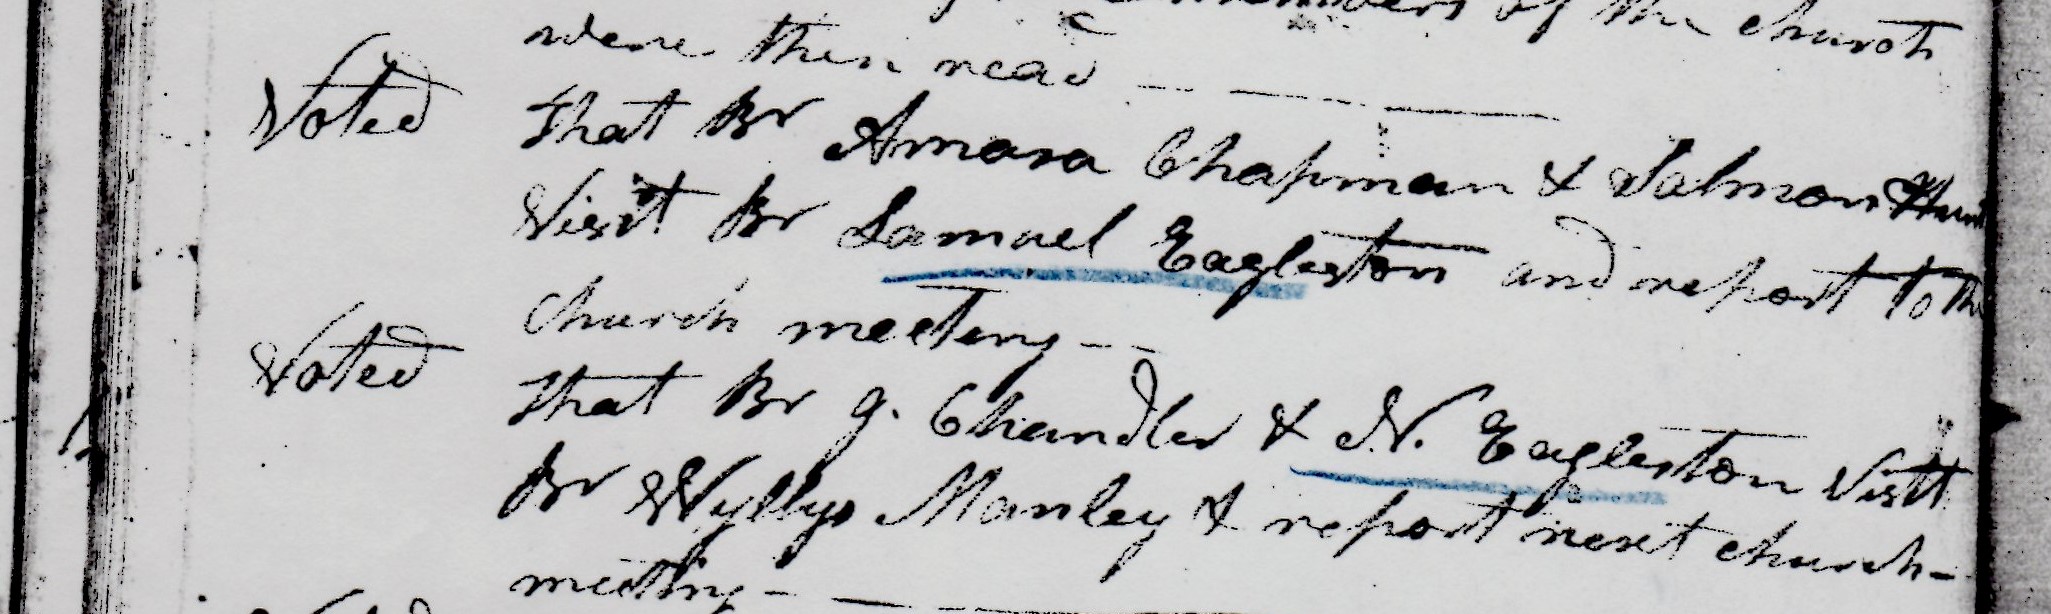 members of the church
were then read
Voted that Br Amasa Chapman & Salmon Hunt
Visit Br Samuel Eagleston and report to the
church meeting --
Voted that Br J. Chandler & N. Eagleston Visit
Br Wyllys Manley & report next church-
meeting -